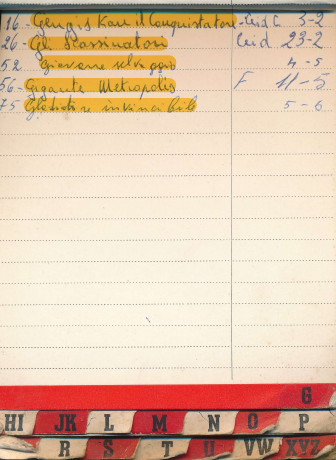 16 - Gengis Kan il Conquistatore - Leid C. 3-2
26 - Gli Scassinatori Ceid 23-2
52 - Giovane selvaggio 4-5
56 - Gigante Metropolis F 11-5
75 Gladiatore invincibile 5-6
G
HI JK L M N O P
R S T U VW XYZ